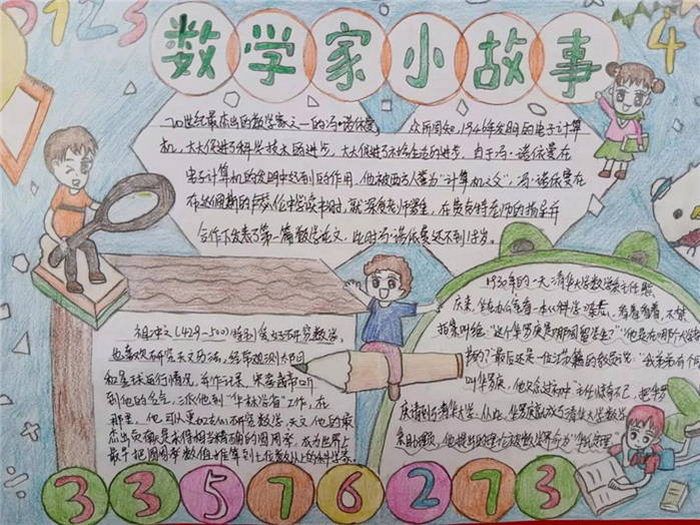 0123
4
数学家小故事
20世纪最杰出的数学家之一的冯·诺依曼
众所周知,1946年发明的电子计算
机,大大促进了科学技术的进步,大大促进了社会生活的进步,由于冯·诺依曼在
电子计算机的发明中起到的作用,他被西方人誉为"计算机之父",冯·诺依曼在
布达佩斯的中学读书时,就深受老师器重,在老师的指导并
合作下发表了第一篇数学论文,此时冯·诺依曼还不到18岁。
祖冲之(429-500)特别爱好研究数学,
也喜欢研究天文历法,经常观测太阳
和星球运行情况,并作记录,宋孝武帝听
到他的名气,派他到"华林学省"工作,在
那里,他可以更加专心研究数学、天文他的最
杰出贡献是求得相当精确的圆周率,成为世界上
最早把圆周率数值推算到七位数以上的科学家。
1930年的一天,清华大学数学系主任熊
庆来,坐在办公室看一本《科学》杂志,看着看着,不禁
拍案叫绝"这个华罗庚是哪国留学生?""他是在哪个大学教
书的?"最后还是一位江苏籍的教员说:"我弟弟有个同
叫华罗庚,他只念过初中"
庚请到了清华大学,从此,华罗庚就成了清华大学数学
系助理员,
33576273